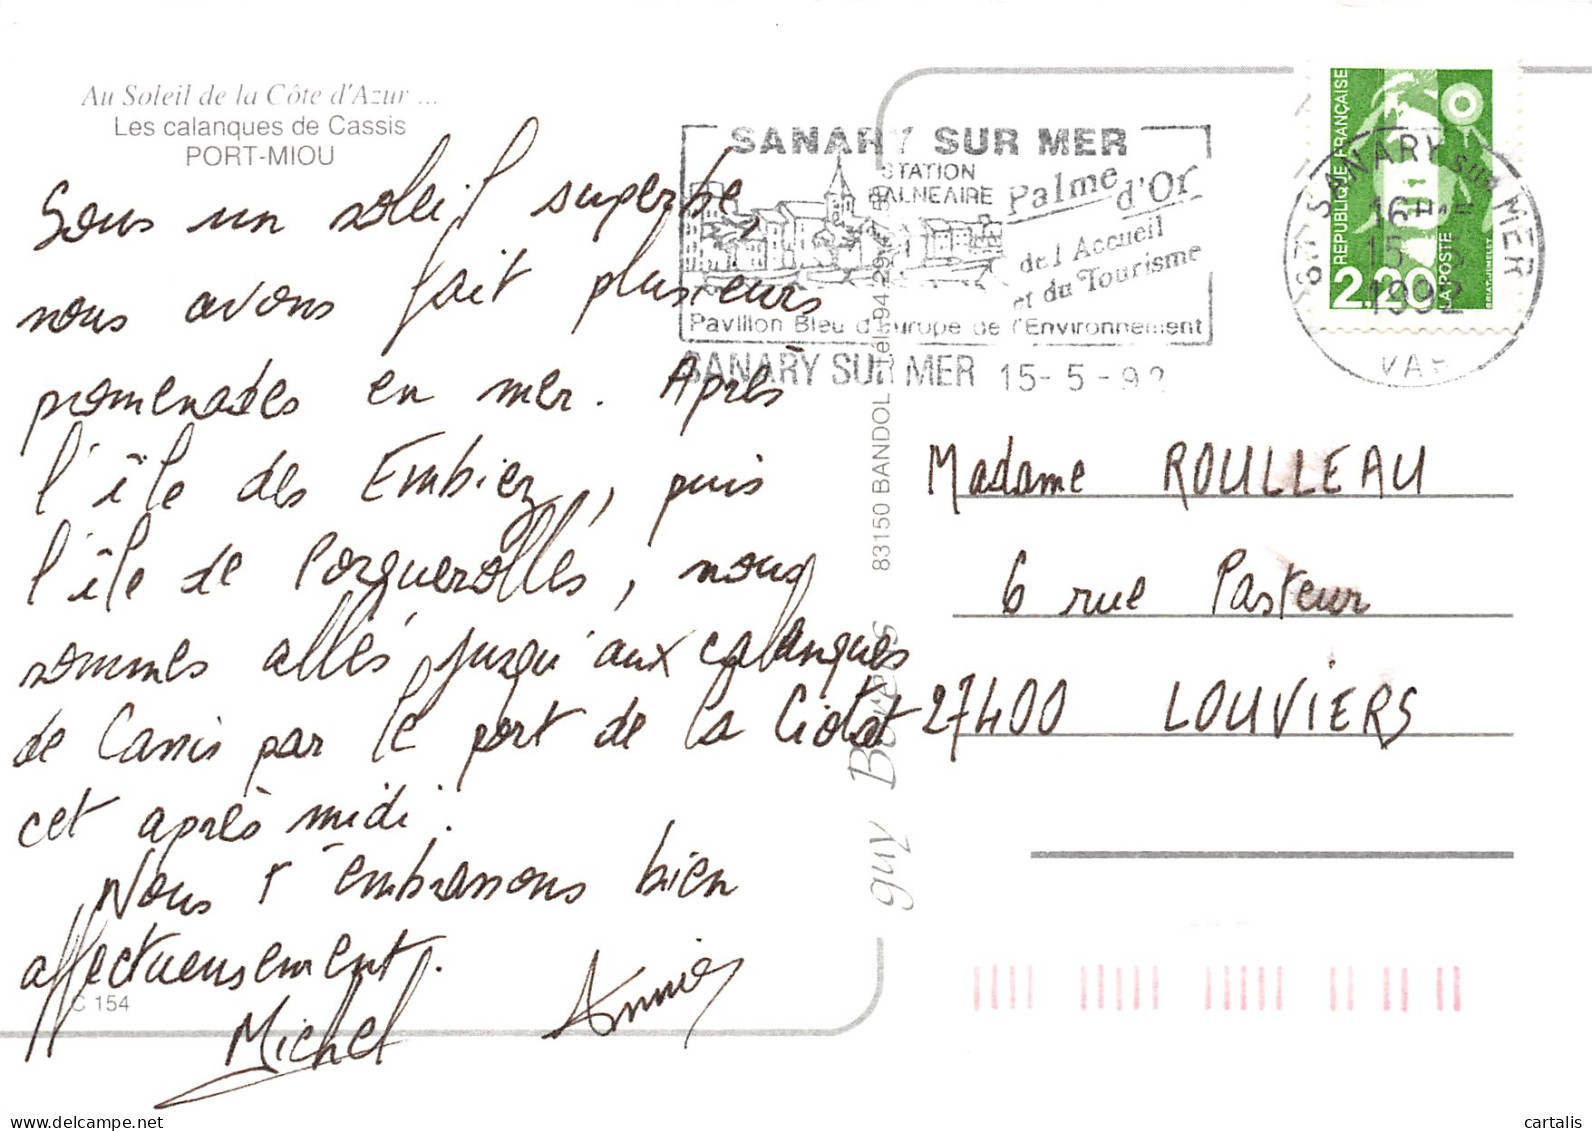 Au Soleil de la Côte d'Azur ...
Les calanques de Cassis
PORT-MIOU
Sous un soleil superbe,
nous avons fait plusieurs
promenades en mer. Après
l'île des Embiez, puis
l'île de Porquerolles, nous
sommes allés jusqu'aux calanques
de Cassis par le port de la Ciotat
cet après midi.
Nous t'embrassons bien
affectueusement.
Michel Annie
C 154
SANARY SUR MER
STATION
BALNEAIRE
Palme d'Or
de l'Accueil
et du Tourisme
Pavillon Bleu d'Europe de l'Environnement
SANARY SUR MER 15-5-92
83150 BANDOL
guy Bores
REPUBLIQUE FRANÇAISE
2.20
LA POSTE
BRIAT-JUMELET
SANARY sur MER
15-5
1992
VAR
Madame ROULLEAU
6 rue Pasteur
27400 LOUVIERS
delcampe.net
cartalis